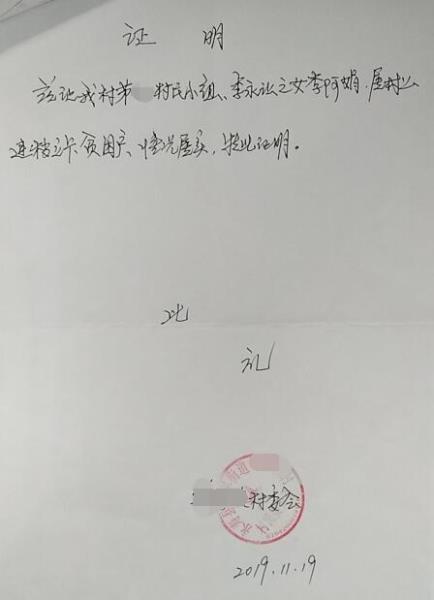 证 明
兹证我村第 村民小组、李永让之女李阿娟，属村上
建档立卡贫困户、情况属实，特此证明。
此
礼
村委会
2019.11.19